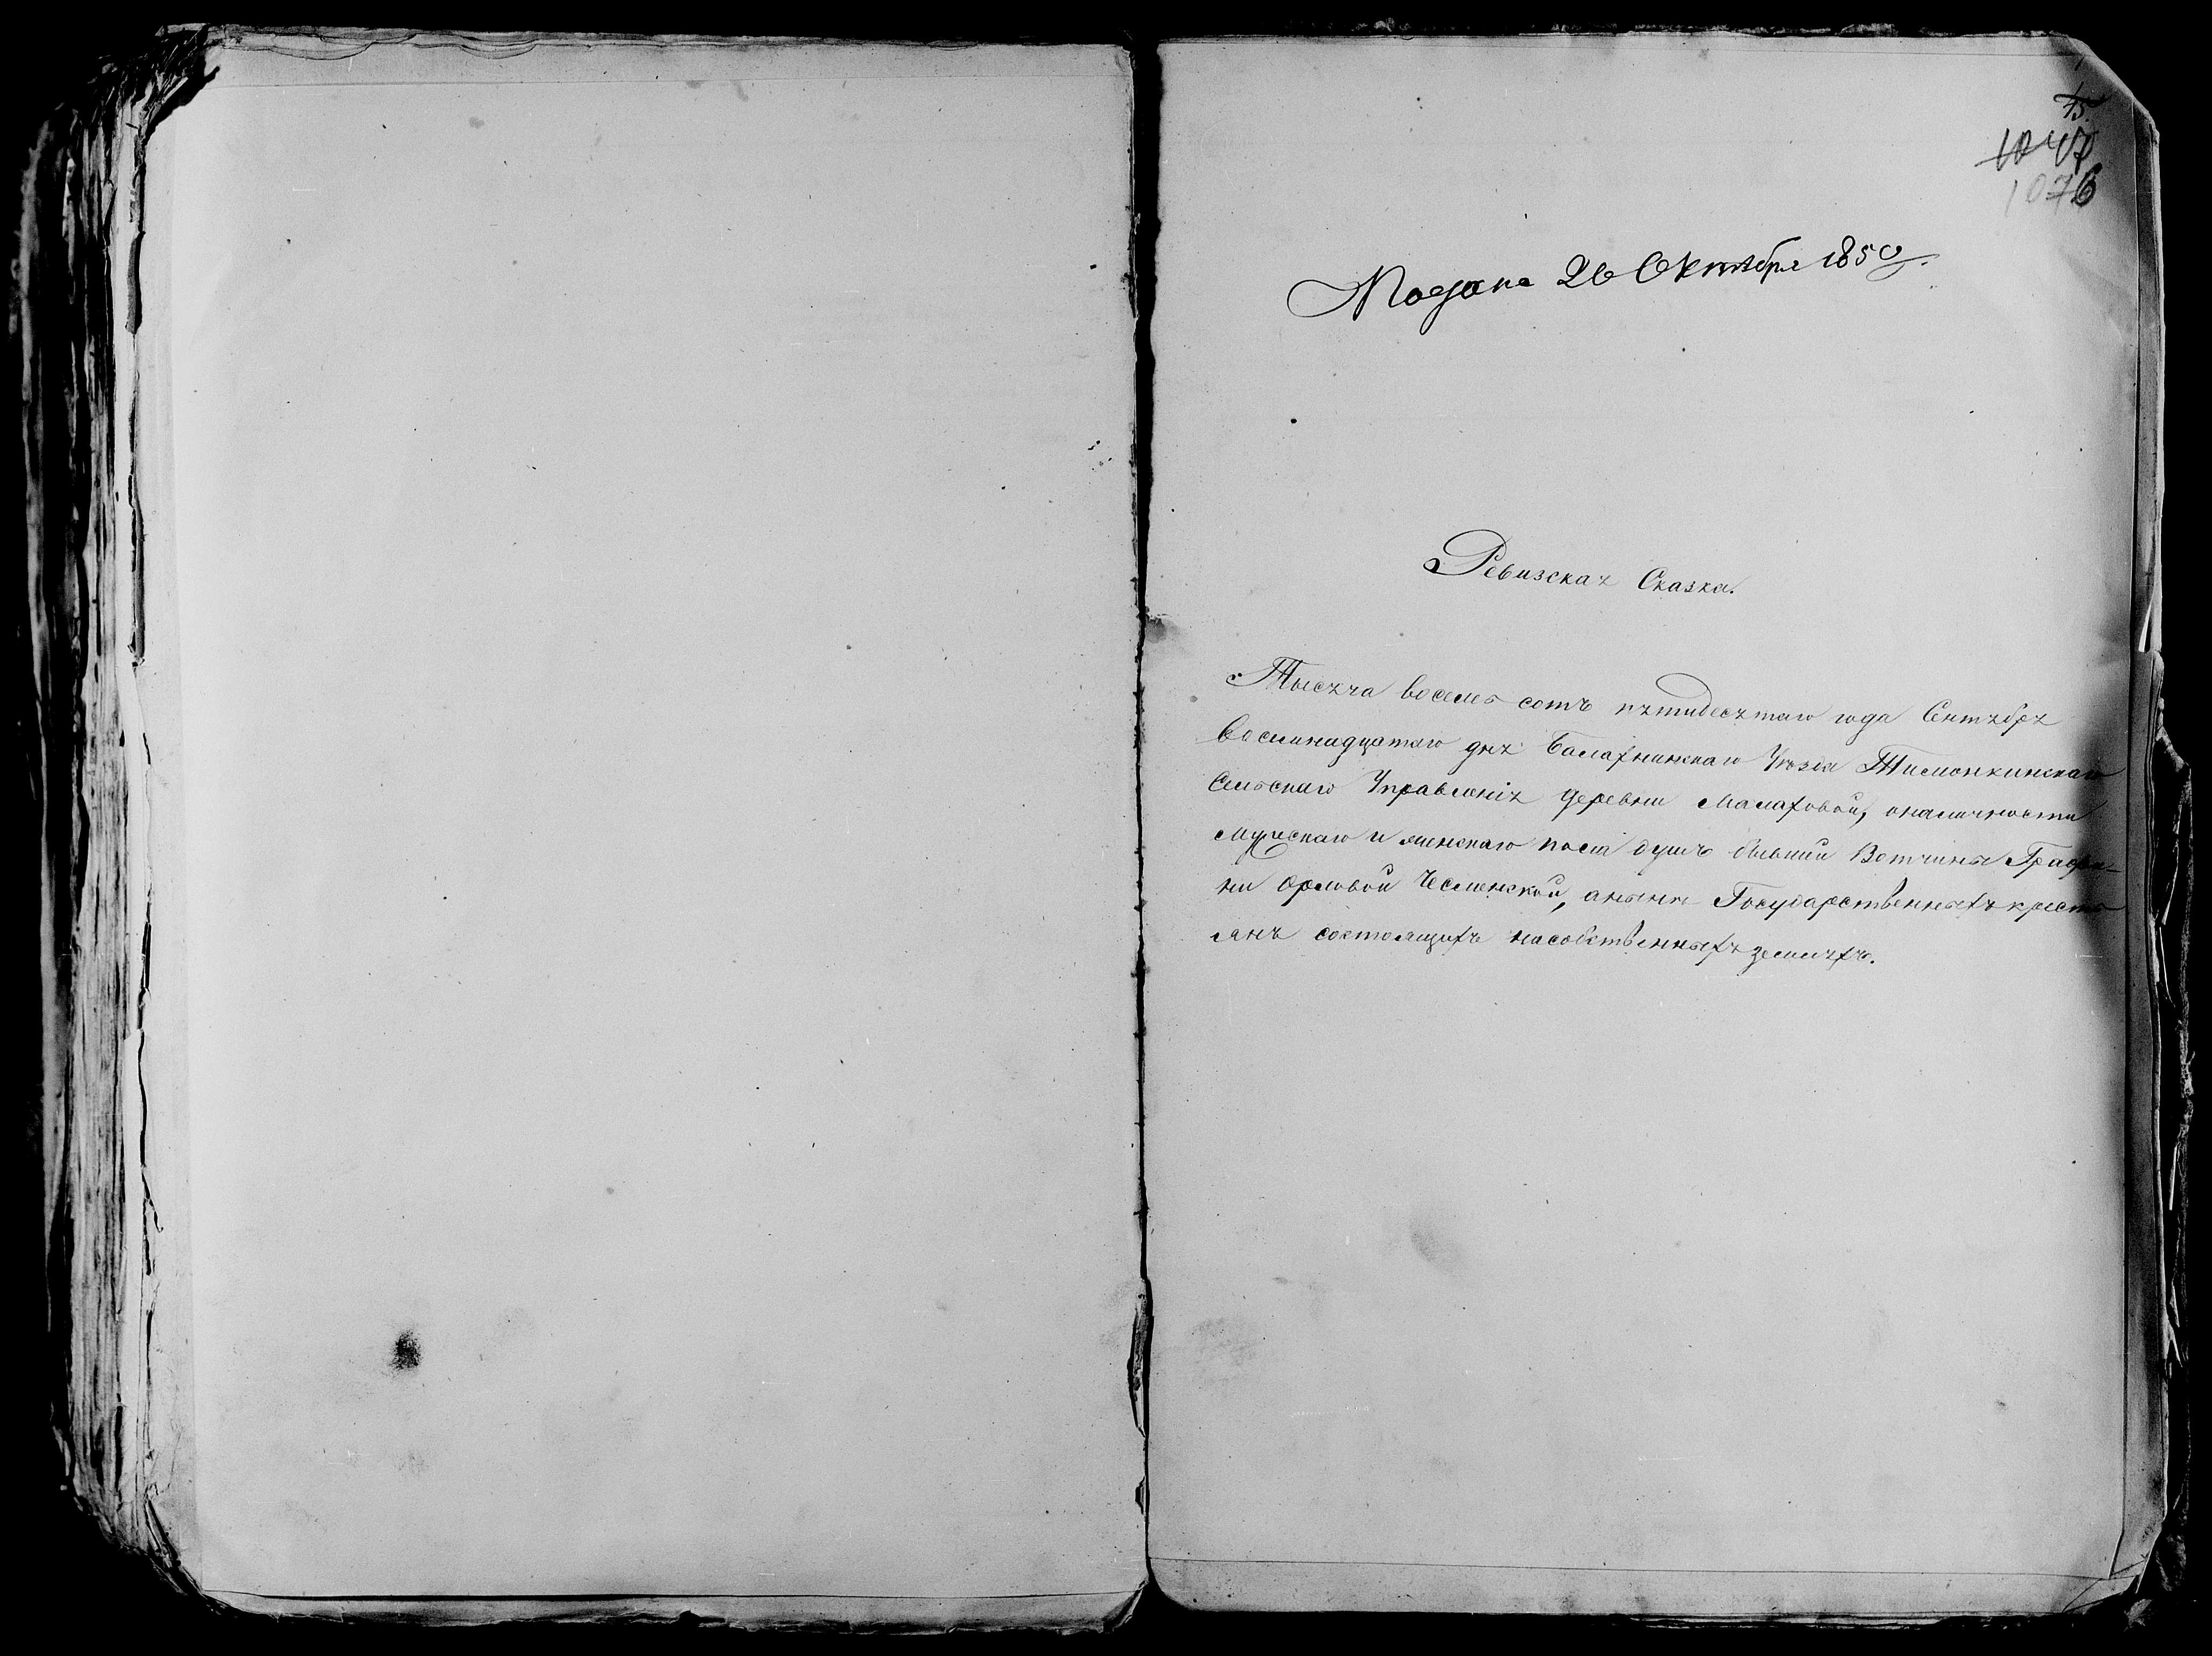 15.
1047
1076
Подана 26 Октября 1850 г.
Ревизская Сказка.
Тысяча восемь сотъ пятидесятаго года Сентября
восемнадцатаго дня Балахнинскаго Уѣзда Тимонкинскаго
Сельскаго Управленія деревни Малаховой, оналичности
мужескаго и женскаго пола душъ бывшей Вотчины Графи-
ни Орловой Чесменской, анынѣ Государственныхъ кресть
янъ состоящихъ насобственныхъ земляхъ.